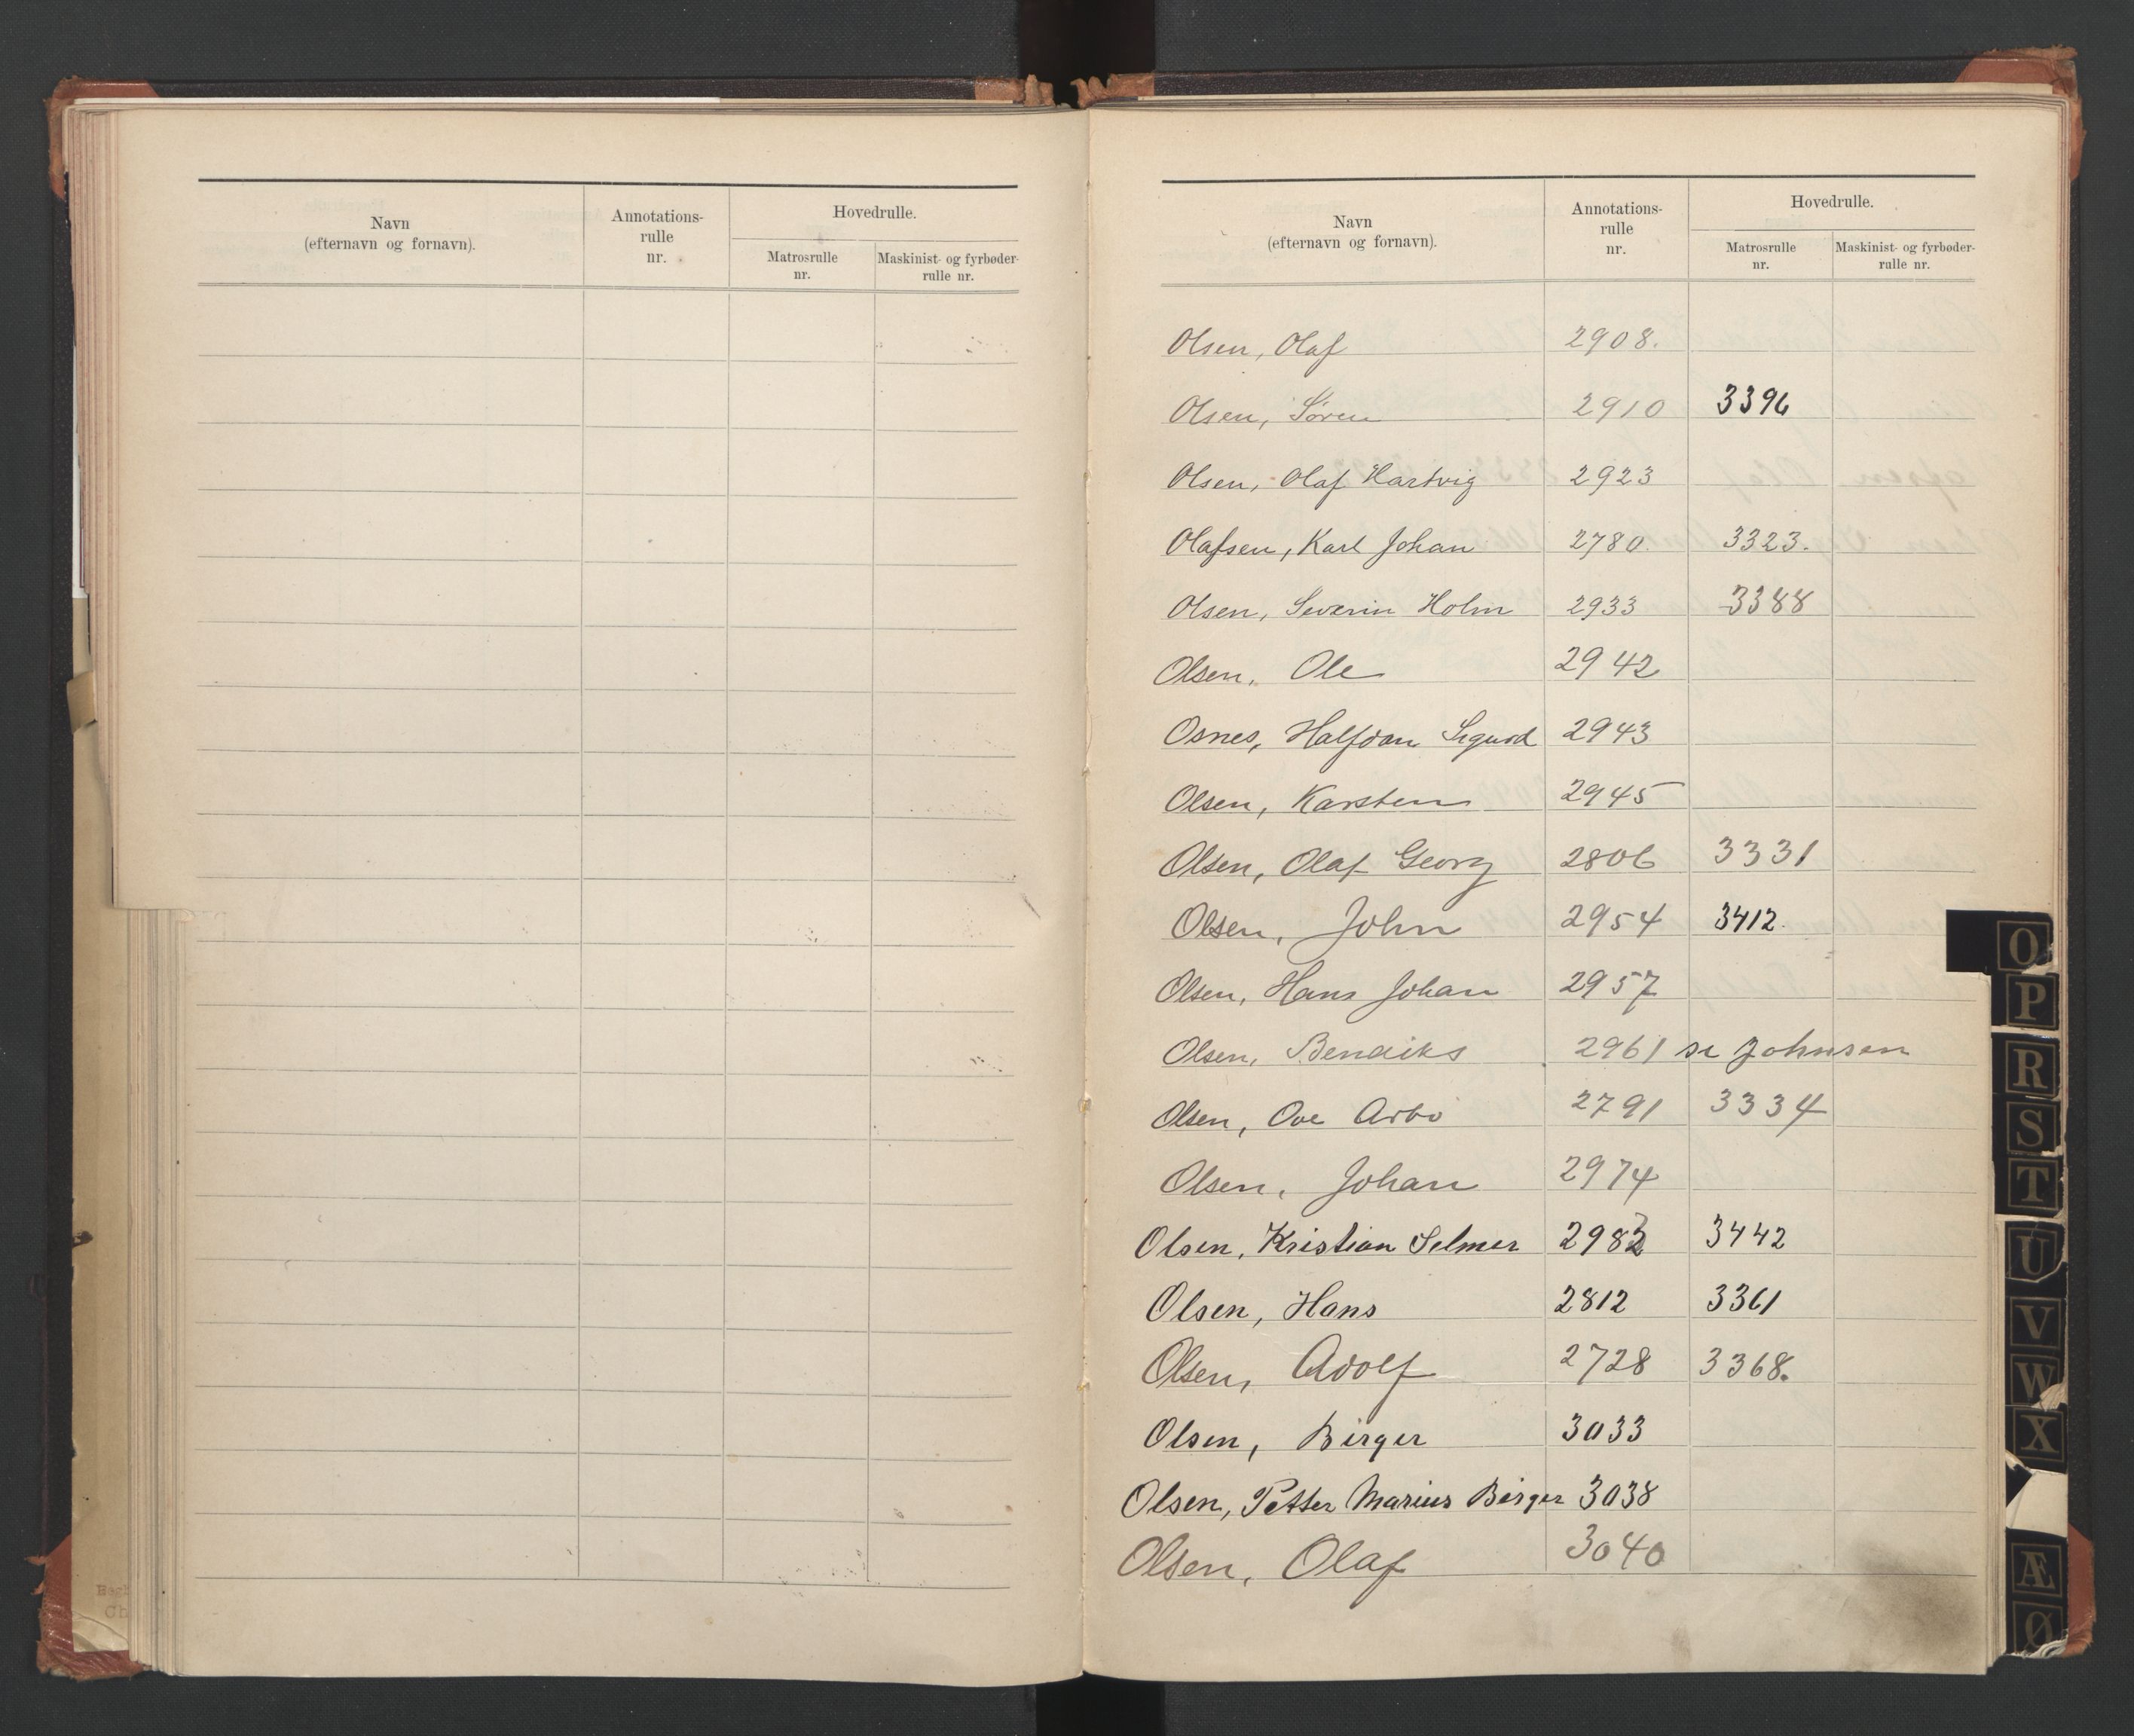 Navn
(efternavn og fornavn).
Annotations-
rulle
nr.
Hovedrulle.
Matrosrulle
nr.
Maskinist- og fyrbøder-
rulle nr.
Navn
(efternavn og fornavn).
Annotations-
rulle
nr.
Hovedrulle.
Matrosrulle
nr.
Maskinist- og fyrbøder-
rulle nr.
Olsen, Olaf 2908.
Olsen, Søren 2910 3396
Olsen, Olaf Hartvig 2923
Olafsen, Karl Johan 2780 3323.
Olsen, Severin Holm 2933 3388
Olsen, Ole 2942
Osnes, Halfdan Sigurd 2943
Olsen, Karsten 2945
Olsen, Olaf Georg 2806 3331
Olsen, John 2954 3412.
Olsen, Hans Johan 2957
Olsen, Bendiks 2961 se Johnsen
Olsen, Ove Arbo 2791 3334
Olsen, Johan 2974
Olsen, Kristian Selmer 2983 3442
Olsen, Hans 2812 3361
Olsen, Adolf 2728 3368.
Olsen, Birger 3033
Olsen, Petter Marius Birger 3038
Olsen, Olaf 3040
O
P
R
S
T
U
V
W
X
Æ
Ø